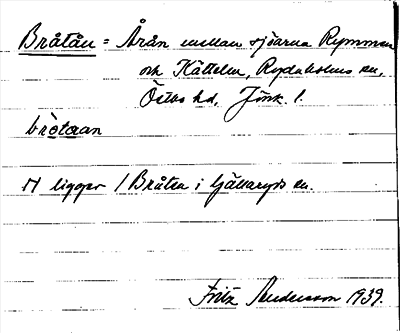 Bråtån = Årån mellan sjöarna Rymmen
och Kättelen, Rydaholms sn,
Östbo hd, Jönk. l.
brötaan
ligger / Bråten i Gällaryds sn.
Fritz Andersson 1939.